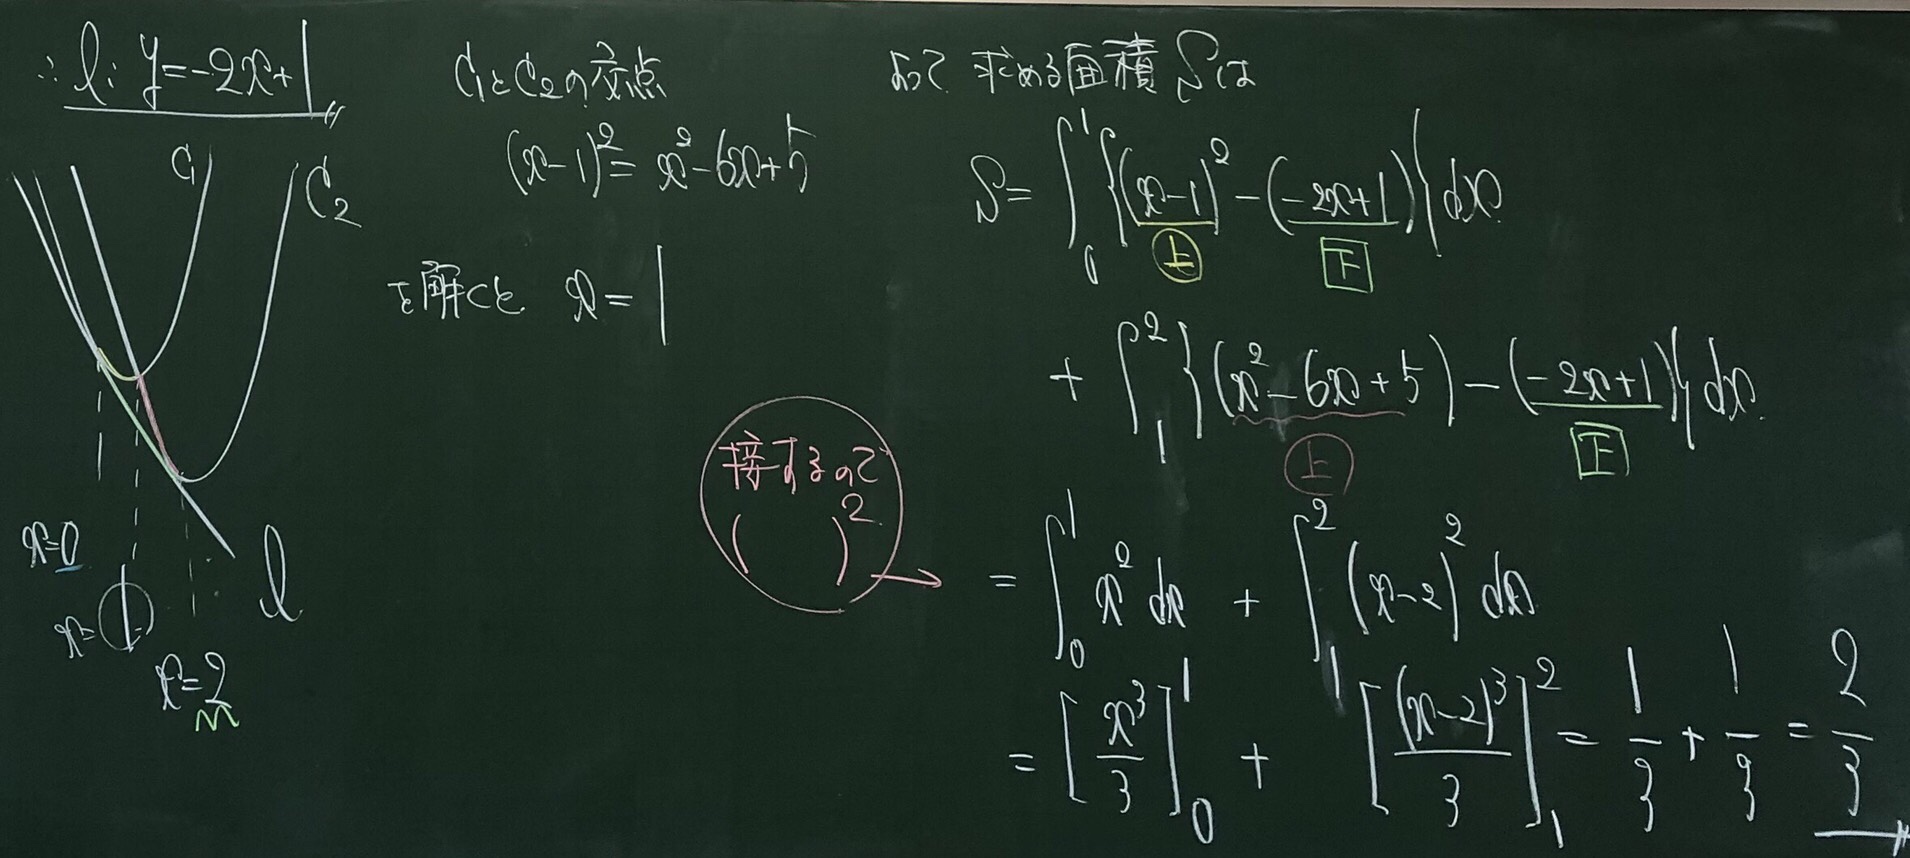 ∴ l: y=-2x+1
C₁ C₂
x=0
x=1
x=2
l
C₁とC₂の交点
(x-1)²= x²-6x+5
を解くと x=1
接するので
( )² →
よって 求める面積 Sは
S= ∫₀¹{(x-1)²-(-2x+1)}dx
上 下
+ ∫₁²{(x²-6x+5)-(-2x+1)}dx
上 下
= ∫₀¹ x² dx + ∫₁² (x-2)² dx
= [x³/3]₀¹ + [(x-2)³/3]₁² = 1/3 + 1/3 = 2/3